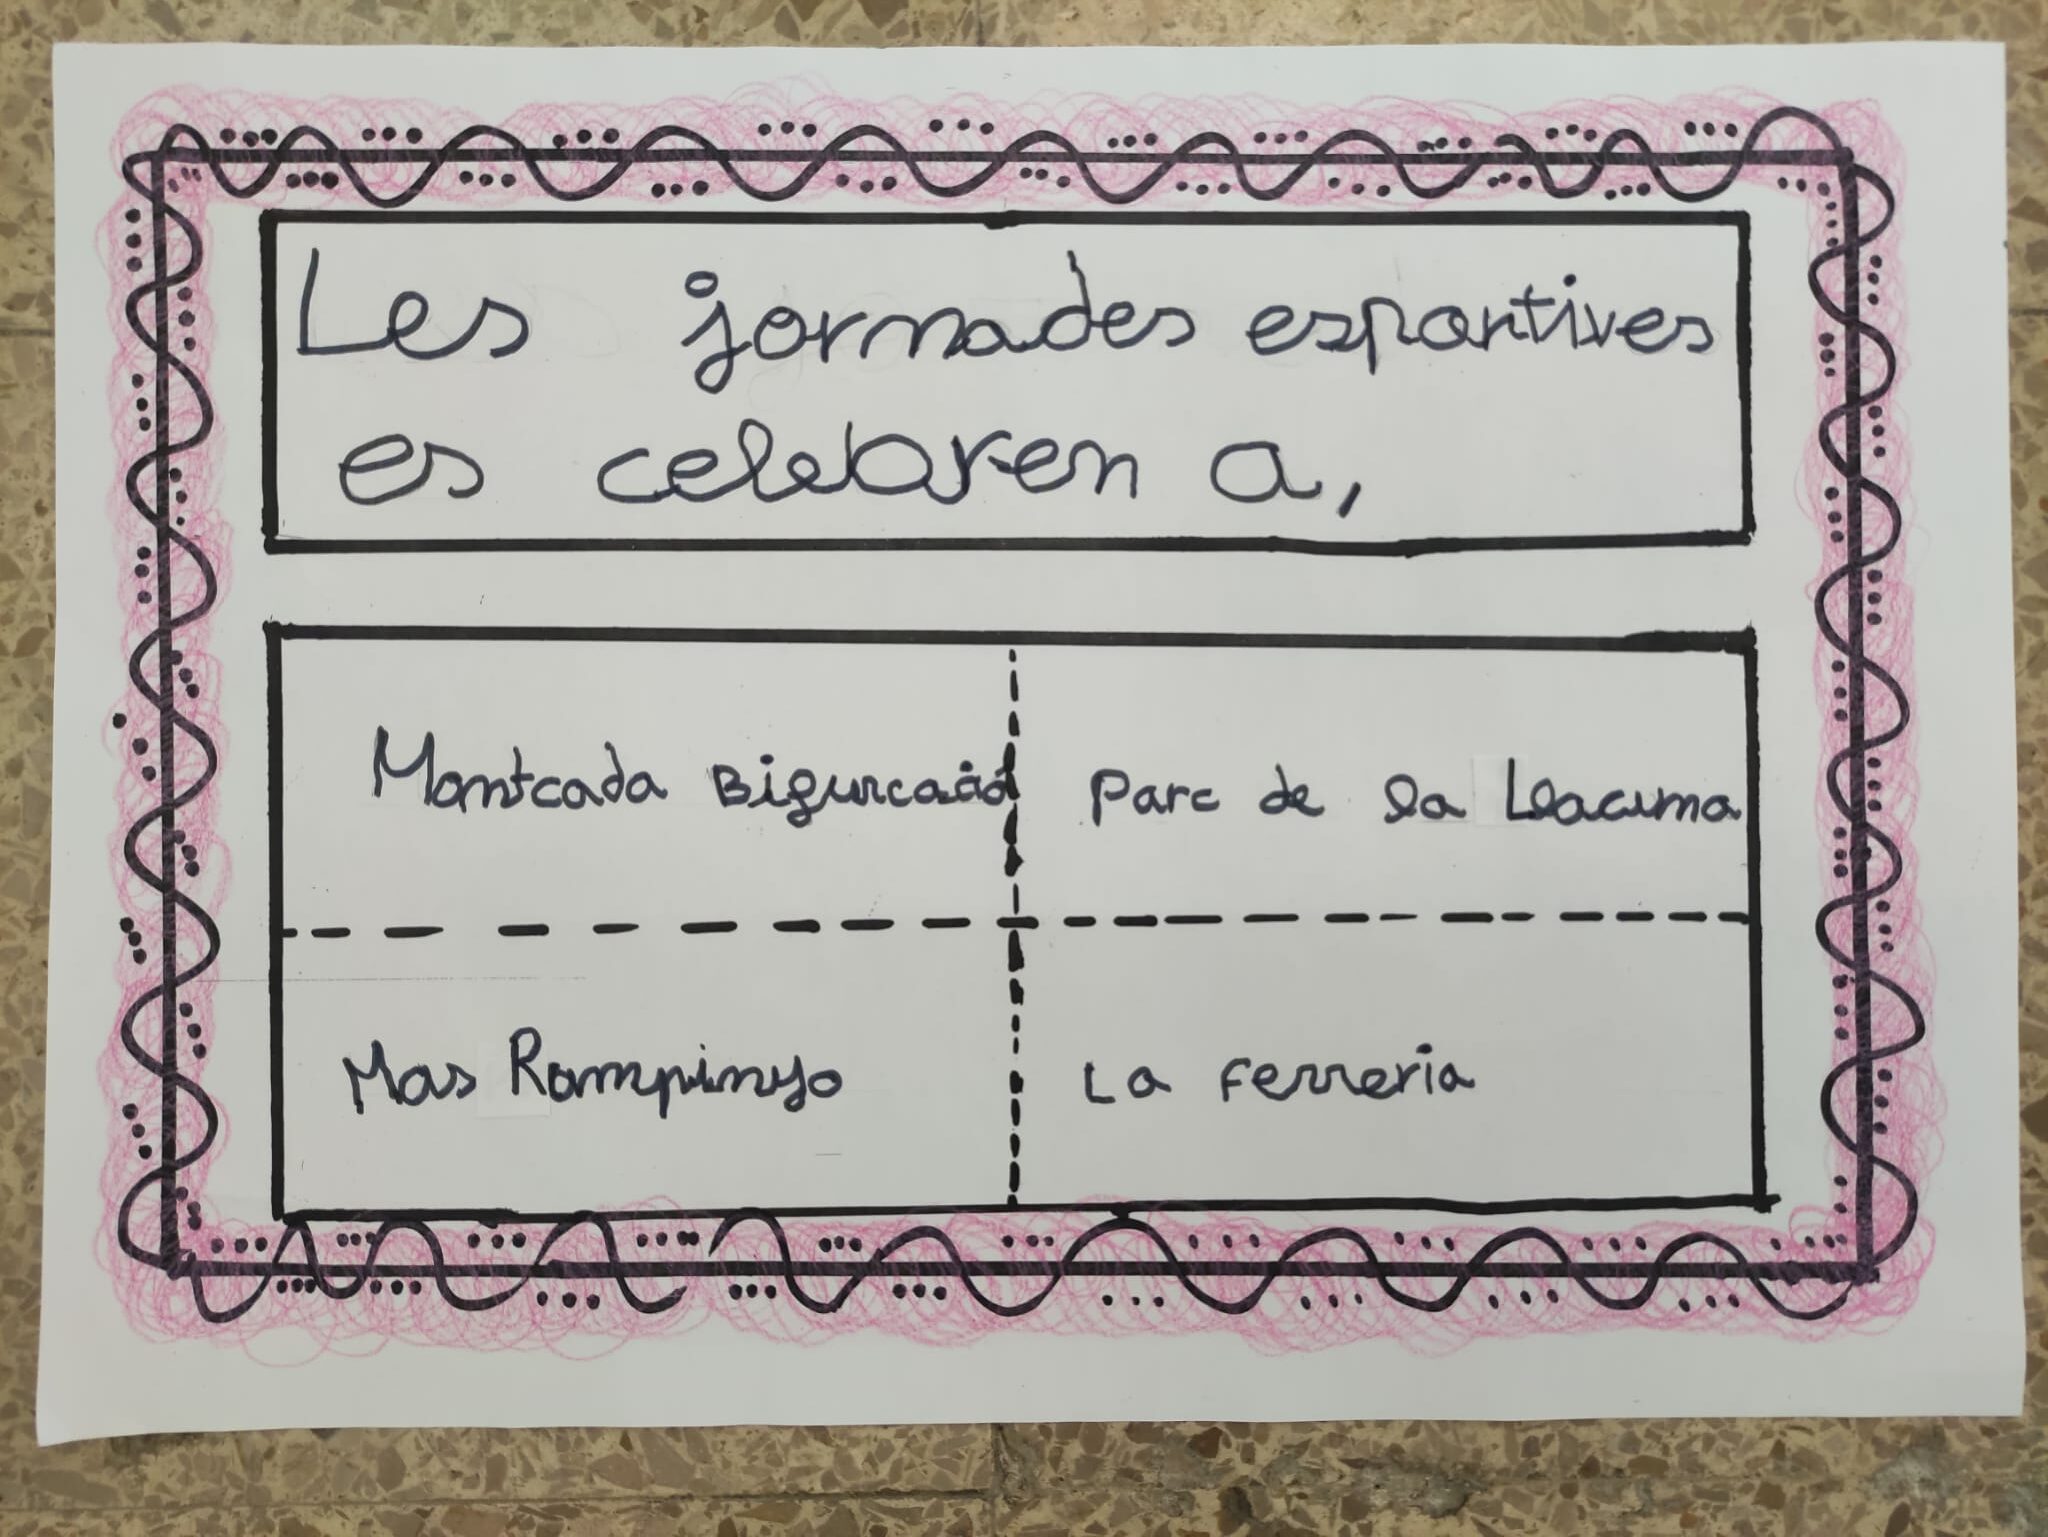 Les jornades esportives
es celebren a,
Montcada Bifurcació
Parc de la Llacuna
Mas Rampinyo
La Ferreria